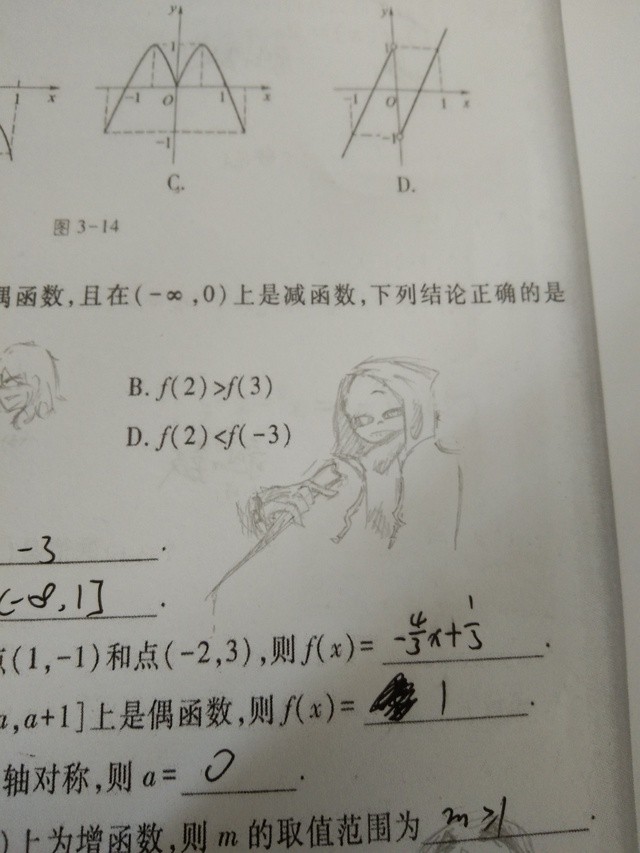 y y
1 1
1 x -1 O 1 x -1 O 1 x
-1 -1
C. D.
图 3-14
偶函数,且在(-∞,0)上是减函数,下列结论正确的是
B. f(2)>f(3)
D. f(2)<f(-3)
-3.
(-∞,1].
点(1,-1)和点(-2,3),则f(x)= -4/3x+1/3.
a,a+1]上是偶函数,则f(x)= 1.
轴对称,则 a= 0.
)上为增函数,则 m 的取值范围为 m≥1.